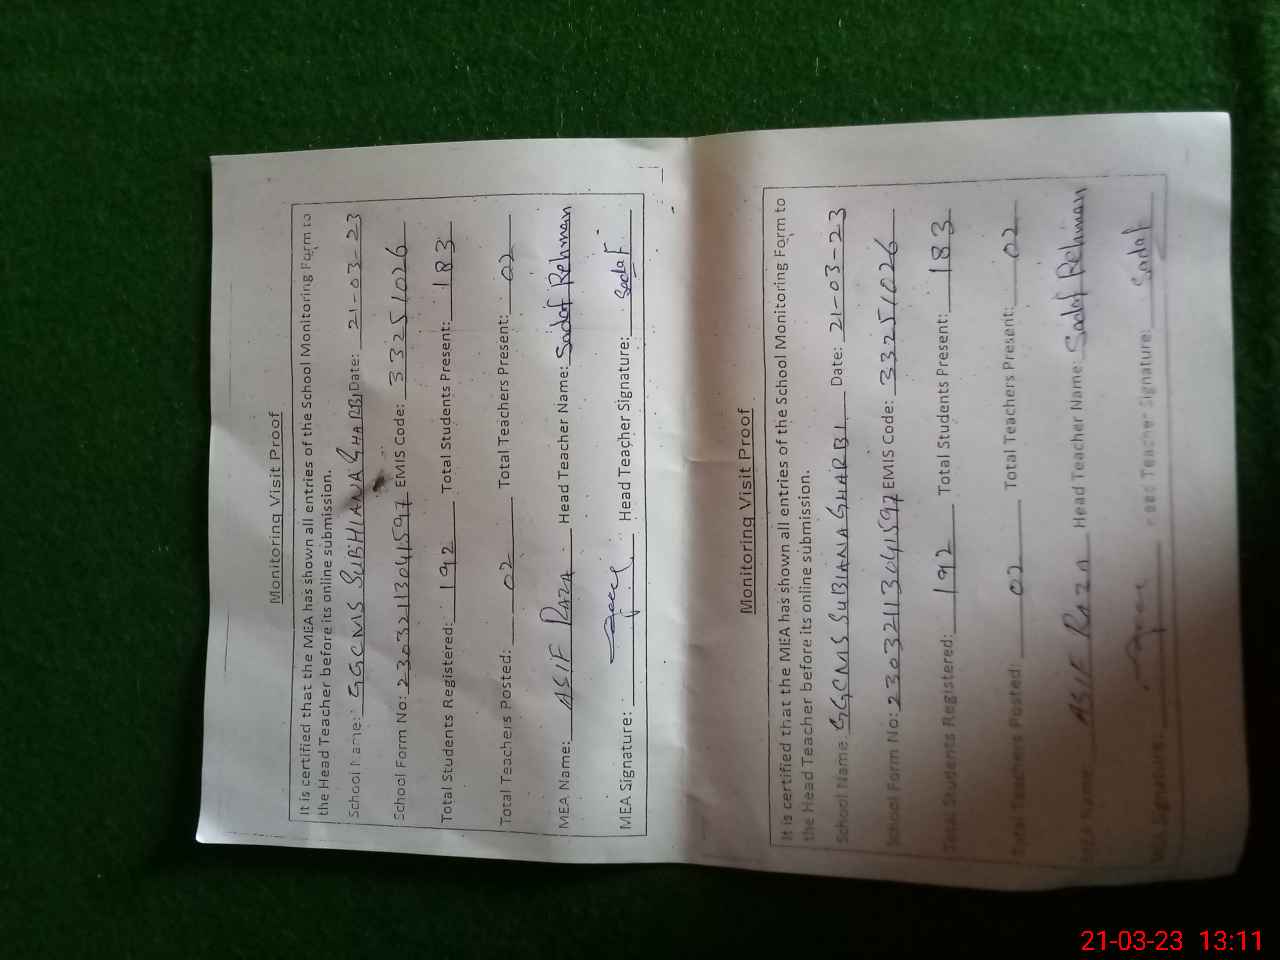 Monitoring Visit Proof
It is certified that the MEA has shown all entries of the School Monitoring Form to
the Head Teacher before its online submission.
School Name: GGCMS SUBHIANA GHARBI Date: 21-03-23
School Form No: 23032113041597 EMIS Code: 33251026
Total Students Registered: 192 Total Students Present: 183
Total Teachers Posted: 02 Total Teachers Present: 02
MEA Name: ASIF RAZA Head Teacher Name: Sadaf Rehman
MEA Signature: Head Teacher Signature: Sadaf
Monitoring Visit Proof
It is certified that the MEA has shown all entries of the School Monitoring Form to
the Head Teacher before its online submission.
School Name: GGCMS SUBIANA GHARBI Date: 21-03-23
School Form No: 23032113041597 EMIS Code: 33251026
Total Students Registered: 192 Total Students Present: 183
Total Teachers Posted: 02 Total Teachers Present: 02
MEA Name ASIF RAZA Head Teacher Name: Sadaf Rehman
MEA Signature: Head Teacher Signature: Sadaf
21-03-23 13:11